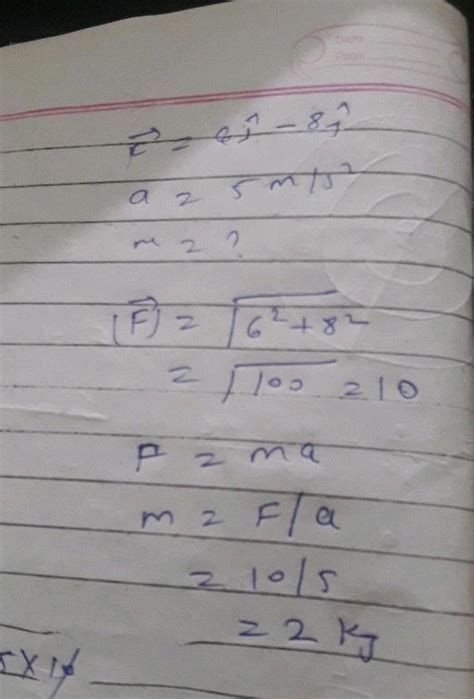 Date
Page
F⃗ = 6ĵ - 8ĵ
a = 5 m/s²
m = ?
|F⃗| = √6²+8²
= √100 = 10
F = ma
m = F/a
= 10/5
= 2 kg
5X10